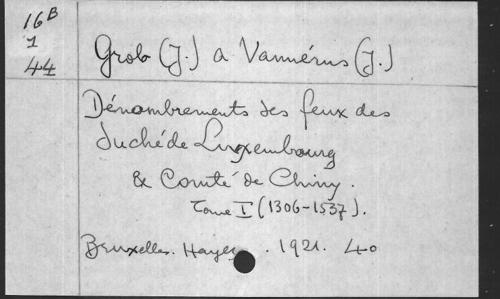 16B
1
44
Grob (J.) a Vannérus (J.)
Dénombrements des feux des
duché de Luxembourg
& Comté de Chiny.
Tome I (1306-1537).
Bruxelles. Hayez. 1921. 4o